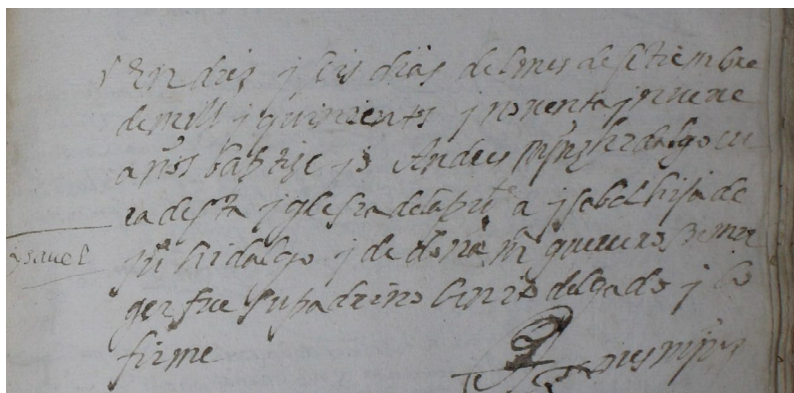 En diez y seis dias del mes de setiembre
de mill y quinientos y noventa y nueve
años baptize yo Andres mrnz hidalgo cu
ra desta yglesia de la put.e a ysabel hija de
ju.o hidalgo y de doña m.a guerrero su mu
ger fue su padrino benito delgado y lo
firme
ysavel